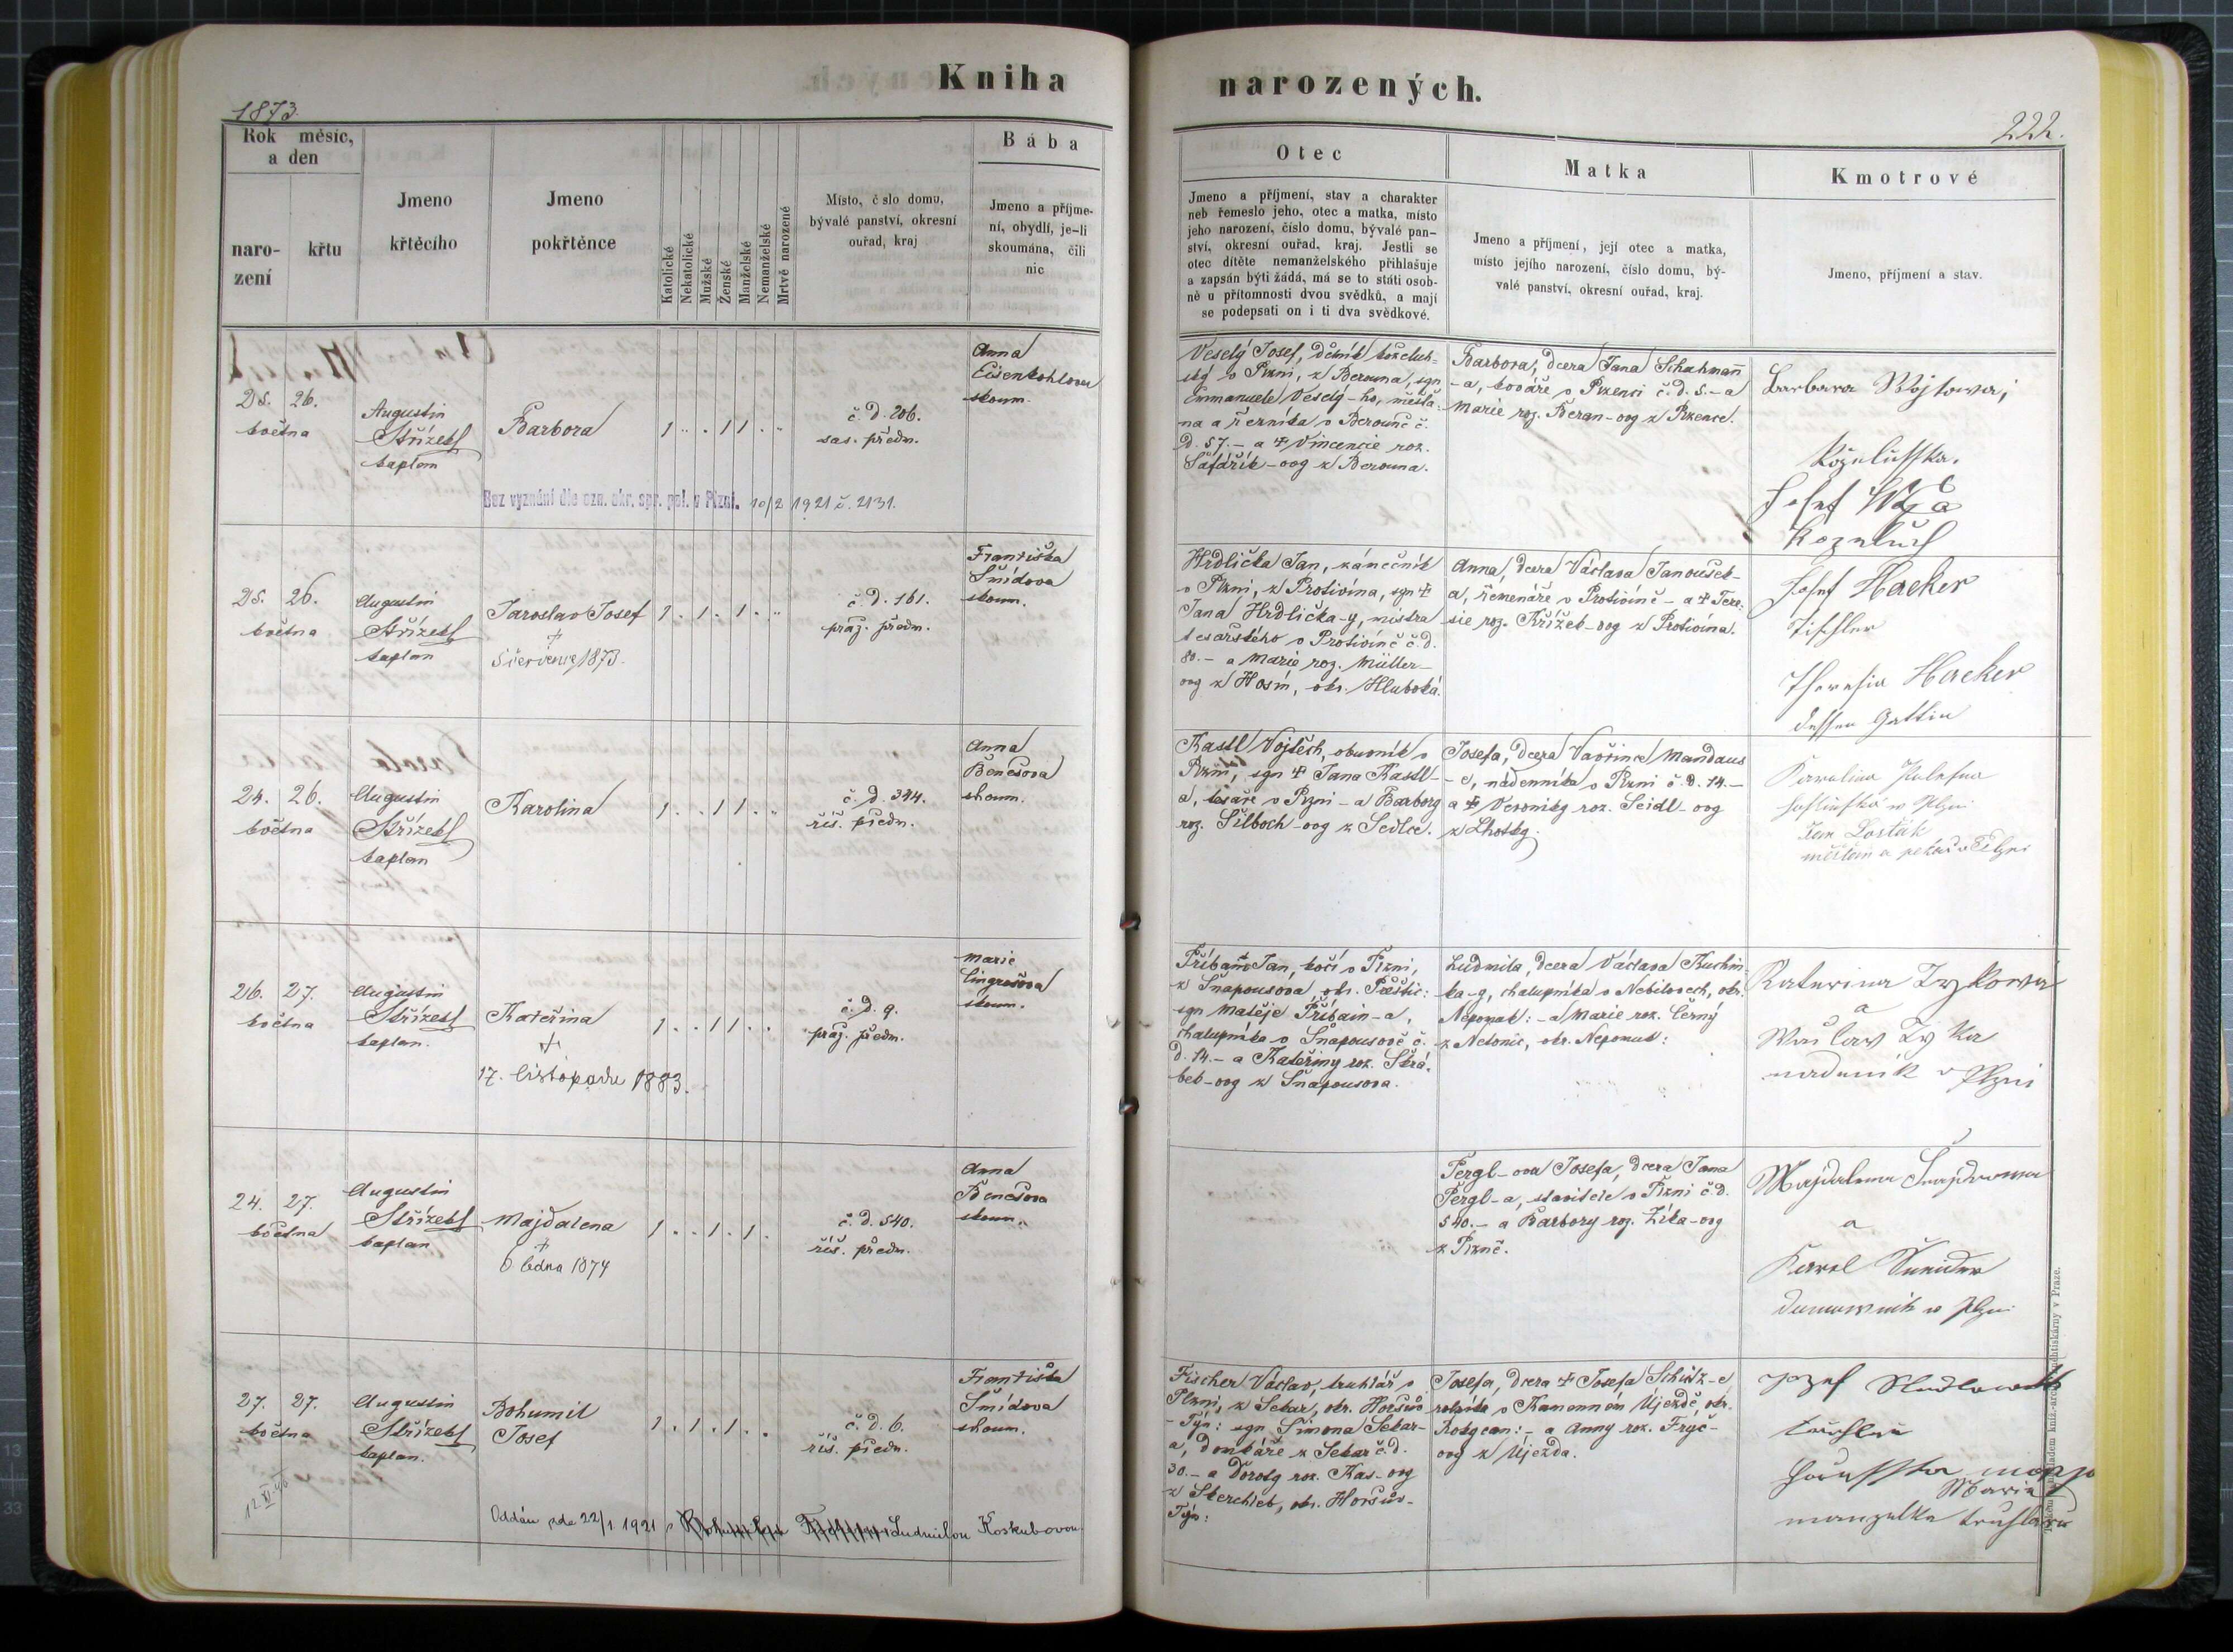 Kniha
narozených.
1873.
222.
Rok měsíc,
a den
naro-
zení
křtu
Jmeno
křtěcího
Jmeno
pokřtěnce
Katolické
Nekatolické
Mužské
Ženské
Manželské
Nemanželské
Mrtvě narozené
Místo, č slo domu,
bývalé panství, okresní
ouřad, kraj
Bába
Jmeno a příjme-
ní, obydlí, je-li
skoumána, čili
nic
Otec
Jmeno a příjmení, stav a charakter
neb řemeslo jeho, otec a matka, místo
jeho narození, číslo domu, bývalé pan-
ství, okresní ouřad, kraj. Jestli se
otec dítěte nemanželského přihlašuje
a zapsán býti žádá, má se to státi osob-
ně u přítomnosti dvou svědků, a mají
se podepsati on i ti dva svědkové.
Matka
Jmeno a příjmení, její otec a matka,
místo jejího narození, číslo domu, bý-
valé panství, okresní ouřad, kraj.
Kmotrové
Jmeno, příjmení a stav.
25. 26.
května
Augustin
Střízek
kaplan
Barbora
1 . . 1 1 . .
č. d. 206.
sas. předm.
Anna
Eisenkohlova
skoum.
Bez vyznání dle ozn. okr. spr. pol. v Plzni. 10/2 1921 č. 2131.
Veselý Josef, dělník koželuž-
ský v Plzni, z Berouna, syn
Emmanuele Veselý-ho, měšťa-
na a řezníka v Berouně č.
d. 57. - a † Vincencie roz.
Šafářík-ovy z Berouna.
Barbora, dcera Jana Schahmann
-a, kováře v Przenci č. d. 5. - a
Marie roz. Beran-ovy z Przence.
Barbara Wojtowa,
Koželužska.
Josef
Koželuh
25. 26.
května
Augustin
Střízek
kaplan
Jaroslav Josef
†
5 července 1873.
1 . 1 . 1 . .
č. d. 161.
praž. předm.
Františka
Šmídova
skoum.
Hrdlička Jan, zámečník
v Plzni, z Protivína, syn †
Jana Hrdlička-y, mistra
tesařského v Protivíně č. d.
80. - a Marie roz. Müller-
ovy z Hosín, okr. Hluboká.
Anna, dcera Václava Janoušek-
a, řemenáře v Protivíně - a † Tere-
sie roz. Křížek-ovy z Protivína.
Josef Hacker
Tischler
Theresia Hacker
dessen Gattin
24. 26.
května
Augustin
Střízek
kaplan
Karolina
1 . . 1 1 . .
č. d. 344.
říš. předm.
Anna
Benešova
skoum.
Kastl Vojtěch, obuvník v
Plzni, syn † Jana Kastl-
a, tesaře v Plzni - a Barbory
roz. Silboch-ovy z Sedlce.
Josefa, dcera Vavřince Mandaus
-e, nádenníka v Plzni č. d. 14. -
a † Veroniky roz. Seidl-ovy
z Lhotky.
Karolina
Jan Lošták
měšťan a pekař v Plzni
26. 27.
května
Augustin
Střízek
kaplan.
Kateřina
†
17. listopadu 1883.
1 . . 1 1 . .
č. d. 9.
praž. předm.
Marie
Lingrošova
skoum.
Příbaň Jan, kočí v Plzni,
z Snapousova, okr. Přeštic:
syn Matěje Příbain-a,
chalupníka v Snapousově č.
d. 14. - a Kateřiny roz. Skrá-
bek-ovy z Snapousova.
Ludmila, dcera Václava Kuchin-
ka-y, chalupníka v Nebílovech, okr.
Nepomuk: - a Marie roz. Černý
z Netonic, okr. Nepomuk:
Katerina Zykowa
a
Waclaw Zyka
nadenik v Plzni
24. 27.
května
Augustin
Střízek
kaplan
Majdalena
†
6 ledna 1874
1 . . 1 . 1 .
č. d. 540.
říš. předm.
Anna
Benešova
skoum.
Pergl-ova Josefa, dcera Jana
Pergl-a, stavitele v Plzni č. d.
540. - a Barbory roz. Zíka-ovy
z Plzně.
Majdalena Šnajdrowa
a
Karel Šneider
27. 27.
května
Augustin
Střízek
kaplan.
Bohumil
Josef
1 . 1 . 1 . .
č. d. 6.
říš. předm.
Františka
Šmídova
skoum.
12. VI. 46
Oddán dne 22/1 1921 s Ludmilou Koskubovou
Fischer Václav, truhlář v
Plzni, z Sekar, okr. Horšův
-Týn: syn Šimona Sekar-
a, domkáře z Sekar č. d.
30. - a Doroty roz. Kas-ovy
z Skerchleb, okr. Horšův-
Týn:
Josefa, dcera † Josefa Schütz-e
rolníka v Kamenném Újezdě, okr.
Rokycan: - a Anny roz. Fryč-
ovy z Újezda.
Jozef
truhlář
Maria
manzelka truhlare